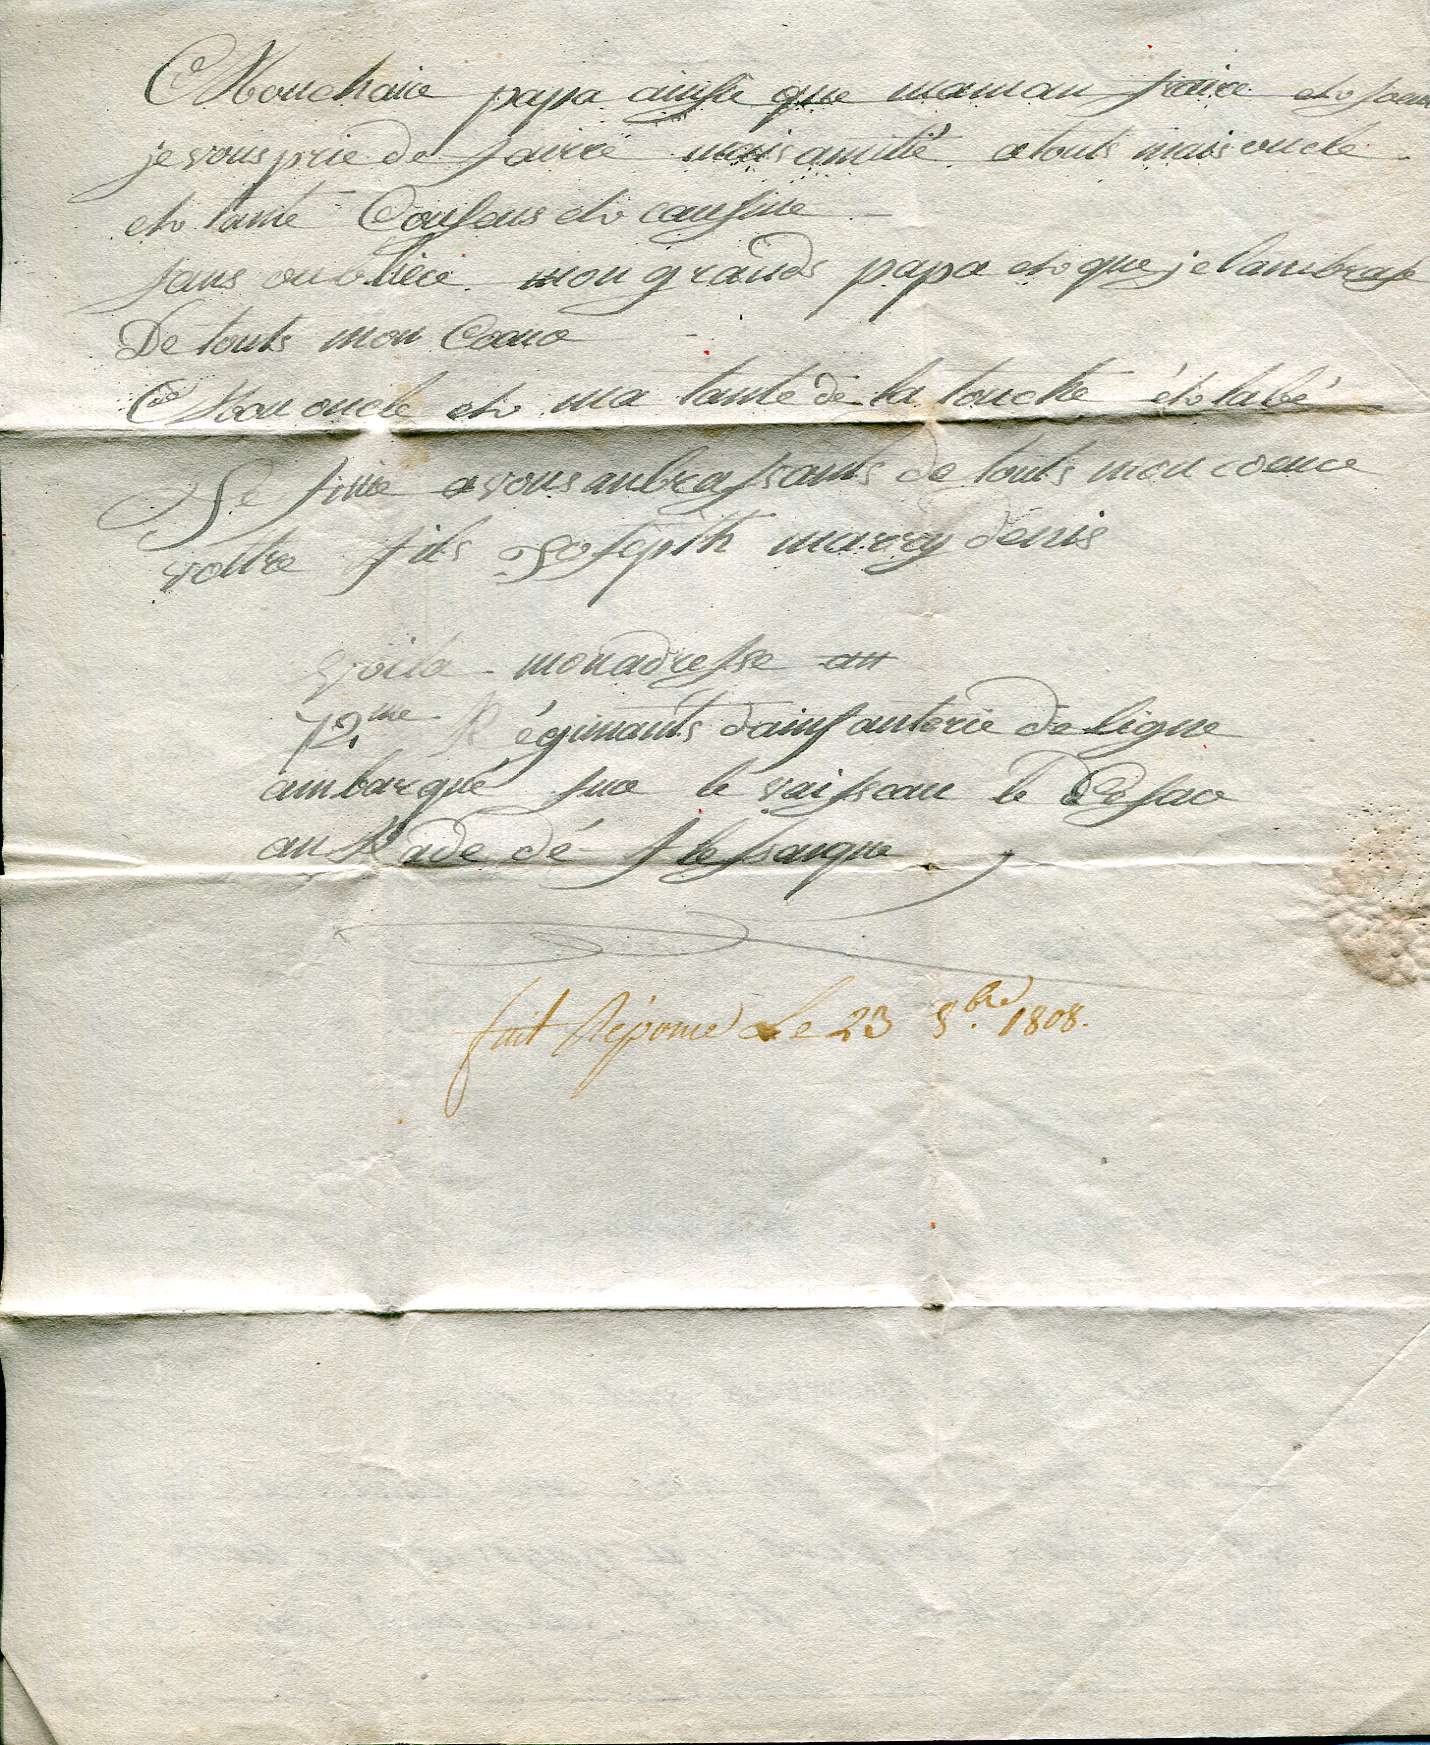 Mouchaire papa ainsie que maman fraire et soeur
je vous prie de fairre mais amitié a touts mais oncle
et tante Cousens et cousine
sans oubliere mon grands papa et que je l'ambrasse
De touts mon Coeur
Mon oncle et ma tante de la touche et labé
Je finie a vous anbrassants de touts mon coeure
vottre fils Joseph marry denis
voila mon adresse au
72.me Régimants dainfanterie de ligne
ambarqué sur le vaisseau le Cesar
au Rade dé flessaigue
fait Réponce Le 23 8.bre 1808.